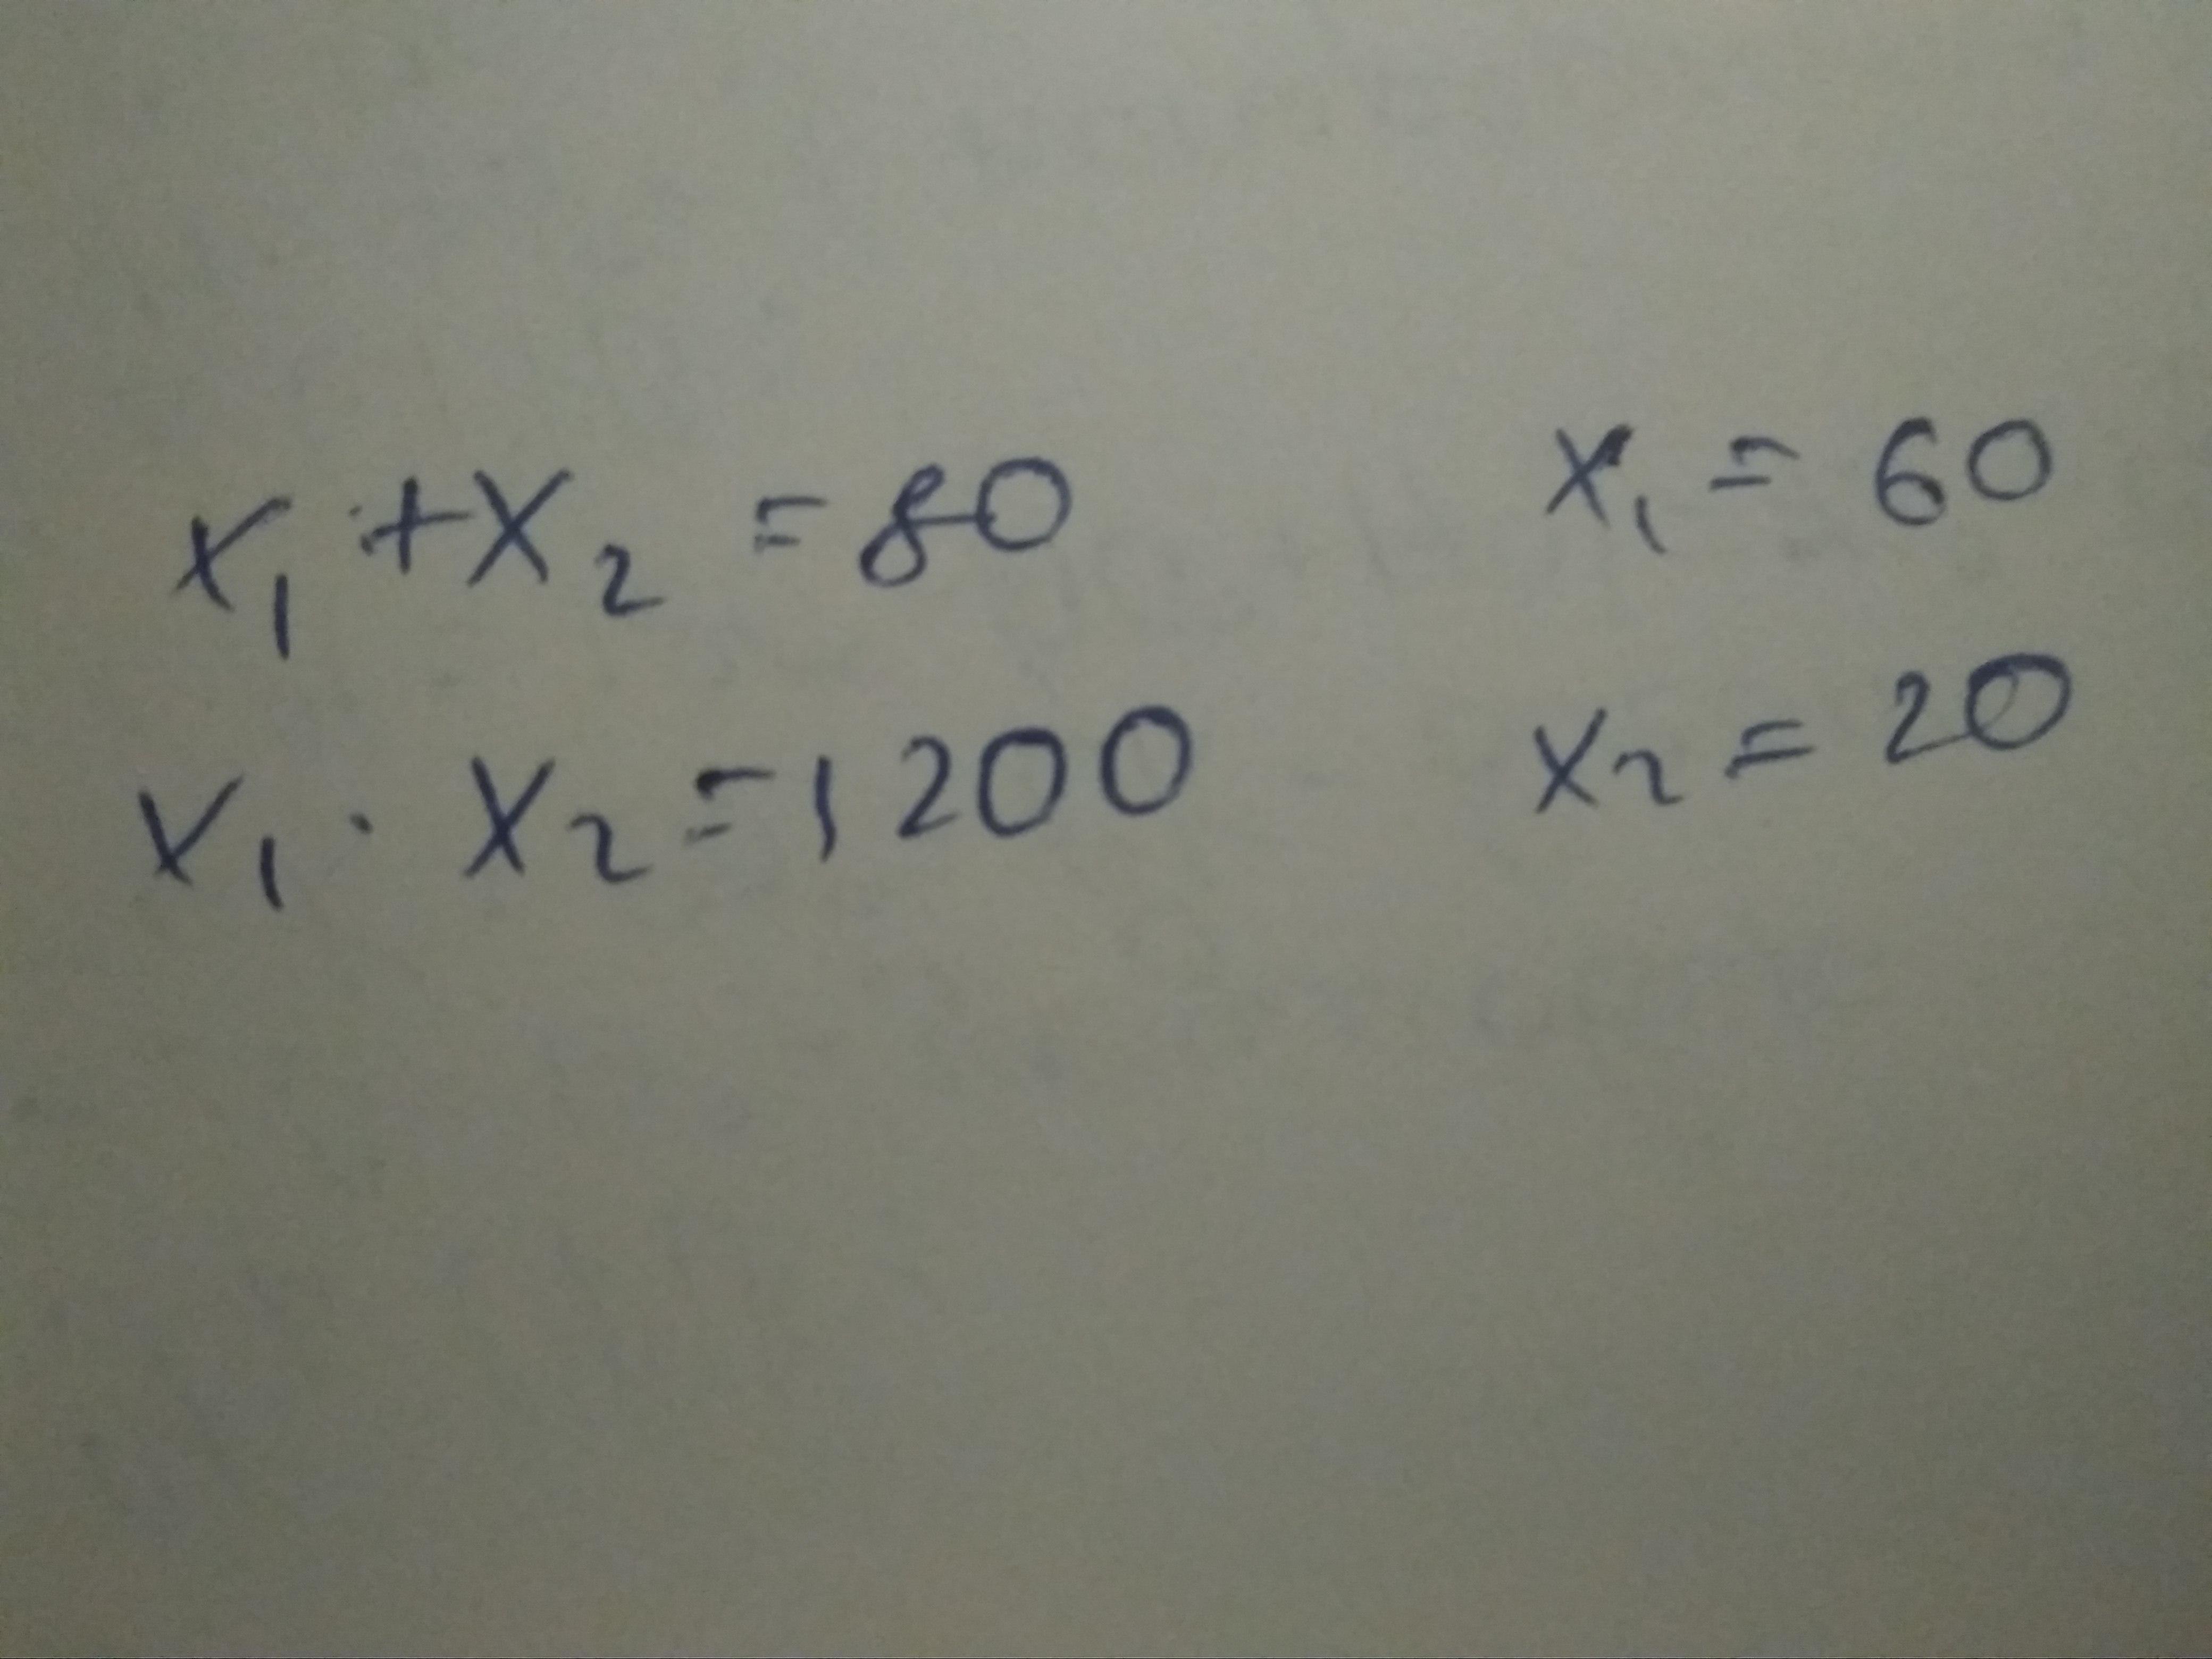 x₁ + x₂ = 80
x₁ · x₂ = 1200
x₁ = 60
x₂ = 20